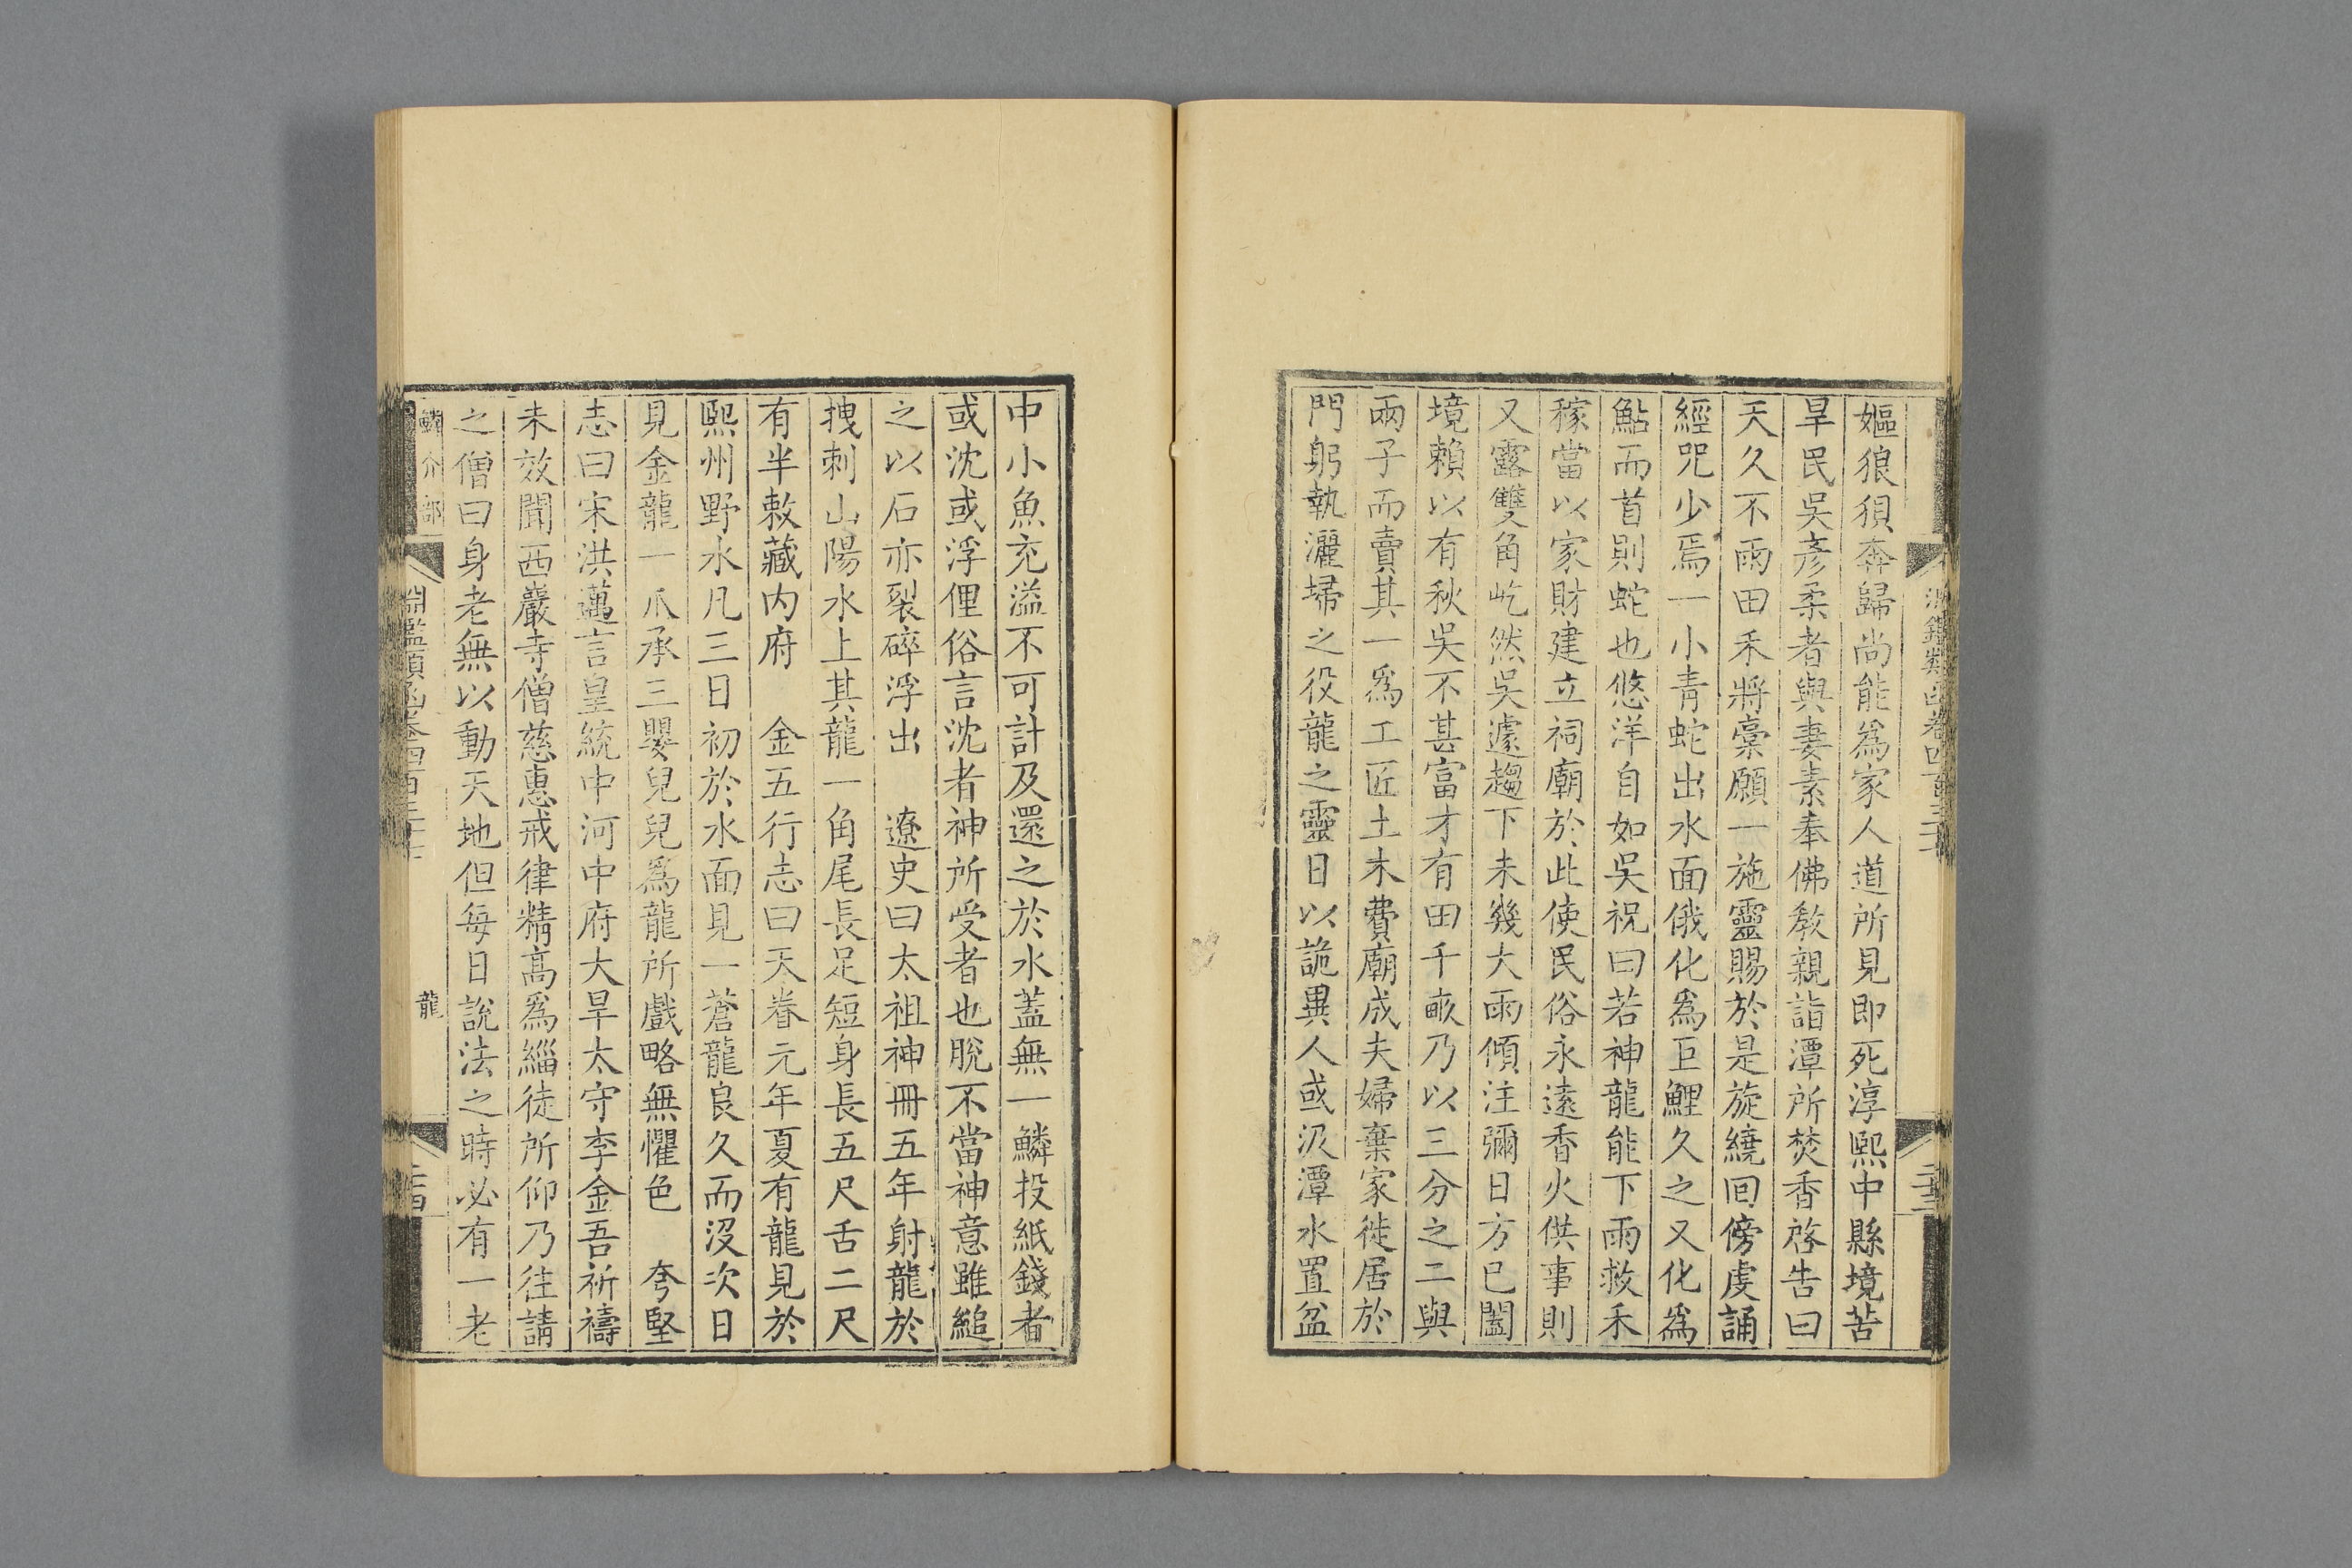 嫗狼狽奔歸尚能爲家人道所見即死淳熙中縣境苦
旱民吳彥柔者與妻素奉佛敎親詣潭所焚香啓告曰
天久不雨田禾將槀願一施靈賜於是旋繞囘傍虔誦
經咒少焉一小青蛇出水面俄化爲巨鯉久之又化爲
鮎而首則蛇也悠洋自如吳祝曰若神龍能下雨救禾
稼當以家財建立祠廟於此使民俗永遠香火供事則
又露雙角屹然吳遽趨下未幾大雨傾注彌日方已闔
境賴以有秋吳不甚富才有田千畝乃以三分之二與
兩子而賣其一爲工匠土木費廟成夫婦棄家徙居於
門躬執灑埽之役龍之靈日以詭異人或汲潭水置盆
中小魚充溢不可計及還之於水蓋無一鱗投紙錢者
或沈或浮俚俗言沈者神所受者也脫不當神意雖縋
之以石亦裂碎浮出　遼史曰太祖神冊五年射龍於
拽剌山陽水上其龍一角尾長足短身長五尺舌二尺
有半敕藏内府　金五行志曰天眷元年夏有龍見於
熙州野水凡三日初於水面見一蒼龍良久而沒次日
見金龍一爪承三嬰兒兒爲龍所戲略無懼色　夸堅
志曰宋洪邁言皇統中河中府大旱太守李金吾祈禱
未效聞西巖寺僧慈惠戒律精高爲緇徒所仰乃往請
之僧曰身老無以動天地但每日說法之時必有一老
鱗介部
淵鑑類函卷四百三十
龍
二十四